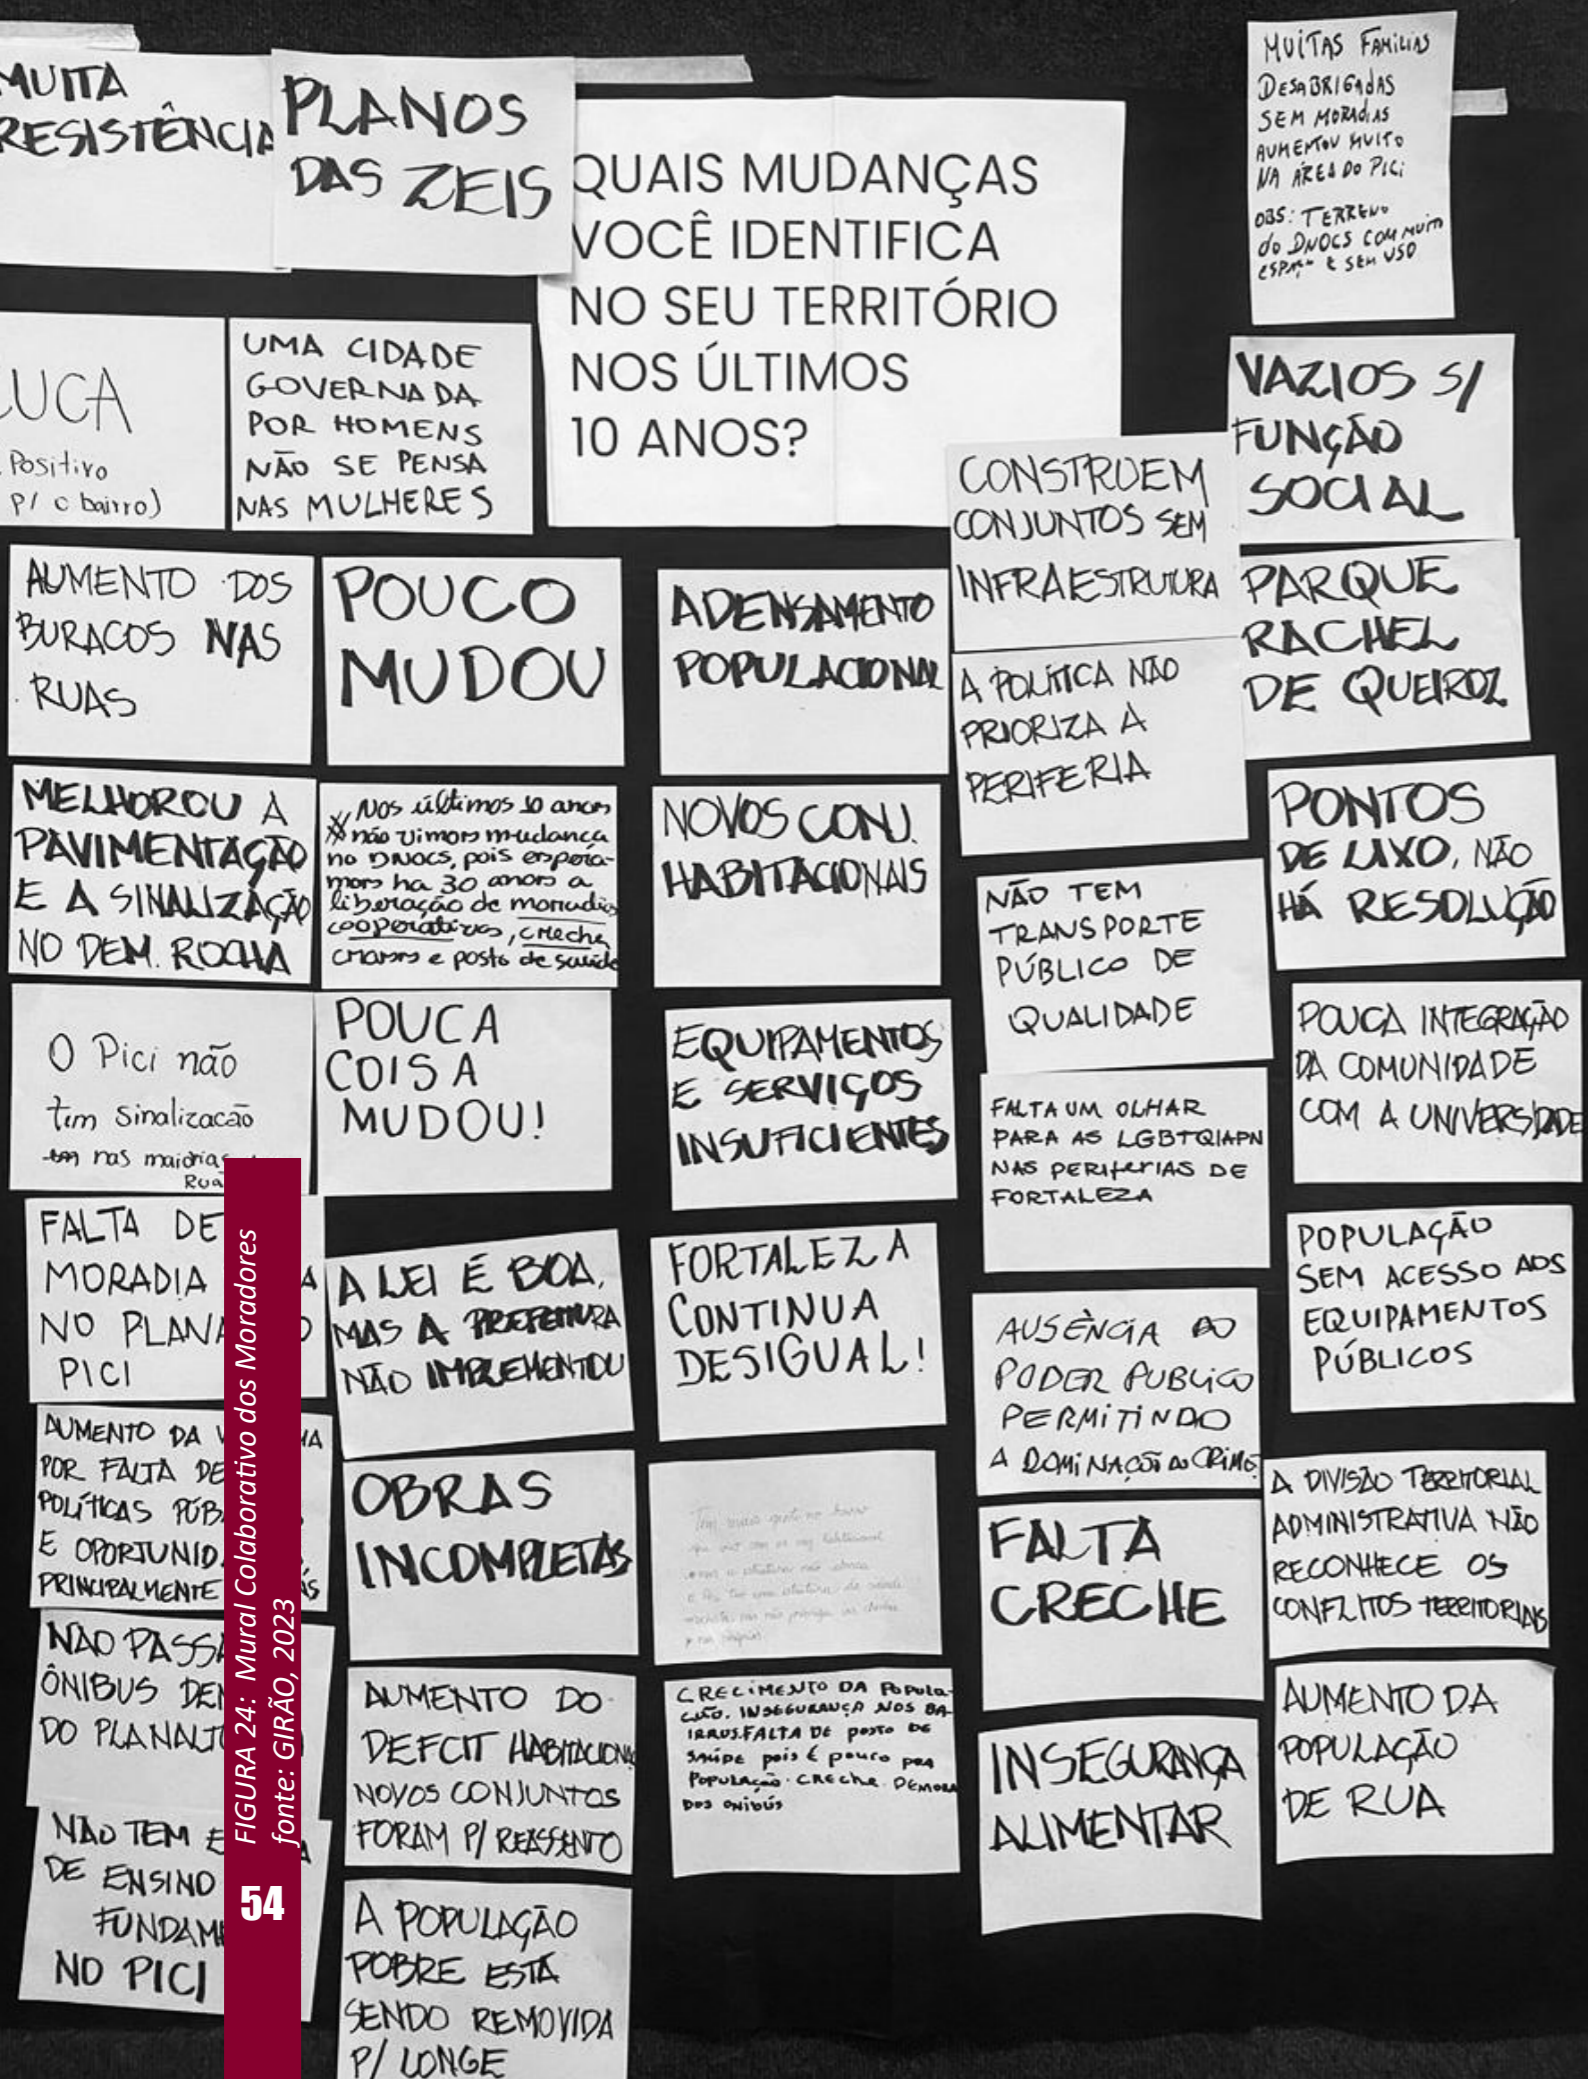 MUITA
RESISTÊNCIA
PLANOS
DAS ZEIS
QUAIS MUDANÇAS
VOCÊ IDENTIFICA
NO SEU TERRITÓRIO
NOS ÚLTIMOS
10 ANOS?
MUITAS FAMILIAS
DESABRIGADAS
SEM MORADIAS
AUMENTOU MUITO
NA ÁREA DO PICI
OBS: TERRENO
do DNOCS COM MUITO
ESPAÇO E SEM USO
LUCA
Positivo
P/ o bairro)
UMA CIDADE
GOVERNADA
POR HOMENS
NÃO SE PENSA
NAS MULHERES
VAZIOS S/
FUNÇÃO
SOCIAL
CONSTROEM
CONJUNTOS SEM
INFRAESTRUTURA
AUMENTO DOS
BURACOS NAS
RUAS
POUCO
MUDOU
ADENSAMENTO
POPULACIONAL
PARQUE
RACHEL
DE QUEIROZ
A POLÍTICA NÃO
PRIORIZA A
PERIFERIA
MELHOROU A
PAVIMENTAÇÃO
E A SINALIZAÇÃO
NO DEM. ROCHA
Nos últimos 10 anos
não vimos mudança
no DNOCS, pois espera-
mos ha 30 anos a
liberação de moradias
cooperativas, creche,
e posto de saúde
NOVOS CONJ.
HABITACIONAIS
PONTOS
DE LIXO, NÃO
HÁ RESOLUÇÃO
NÃO TEM
TRANSPORTE
PÚBLICO DE
QUALIDADE
O Pici não
tem sinalizacão
nas maiorias
Rua
POUCA
COISA
MUDOU!
EQUIPAMENTOS
E SERVIÇOS
INSUFICIENTES
POUCA INTEGRAÇÃO
DA COMUNIDADE
COM A UNIVERSIDADE
FALTA UM OLHAR
PARA AS LGBTQIAPN
NAS PERIFERIAS DE
FORTALEZA
FALTA DE
MORADIA
NO PLANA
PICI
A LEI É BOA,
MAS A PREFEITURA
NÃO IMPLEMENTOU
FORTALEZA
CONTINUA
DESIGUAL!
POPULAÇÃO
SEM ACESSO AOS
EQUIPAMENTOS
PÚBLICOS
AUSÊNCIA DO
PODER PUBLICO
PERMITINDO
A DOMINAÇÃO DO CRIME
AUMENTO DA
POR FALTA DE
POLÍTICAS PÚB
E OPORTUNID
PRINCIPALMENTE
OBRAS
INCOMPLETAS
FALTA
CRECHE
A DIVISÃO TERRITORIAL
ADMINISTRATIVA NÃO
RECONHECE OS
CONFLITOS TERRITORIAIS
NÃO PASSA
ÔNIBUS DEN
DO PLANALTO
AUMENTO DO
DEFCIT HABITACIONAL
NOVOS CONJUNTOS
FORAM P/ REASSENTO
CRECIMENTO DA POPULA-
CÃO. INSEGURANÇA NOS BA-
IRROS. FALTA DE POSTO DE
SAÚDE pois É pouco pra
POPULAÇÃO. CRECHE. DEMORA
DOS ONIBÚS
INSEGURANÇA
ALIMENTAR
AUMENTO DA
POPULAÇÃO
DE RUA
NÃO TEM E
DE ENSINO
FUNDAME
NO PICI
A POPULAÇÃO
POBRE ESTÁ
SENDO REMOVIDA
P/ LONGE
FIGURA 24: Mural Colaborativo dos Moradores
fonte: GIRÃO, 2023
54